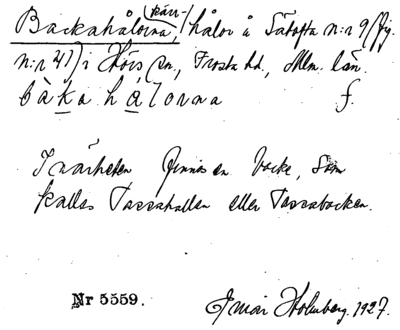 (kärr-)
Backahålorna, hålor å Sätofta n:r 9 (fig.
n:r 41) i Hörs sn, Frosta hd., Mlm. län.
bàkahålorna f.
I närheten finnes en backe, som
kallas Tassahallen eller Tassabacken.
Nr 5559.
Ingvar Holmberg. 1927.